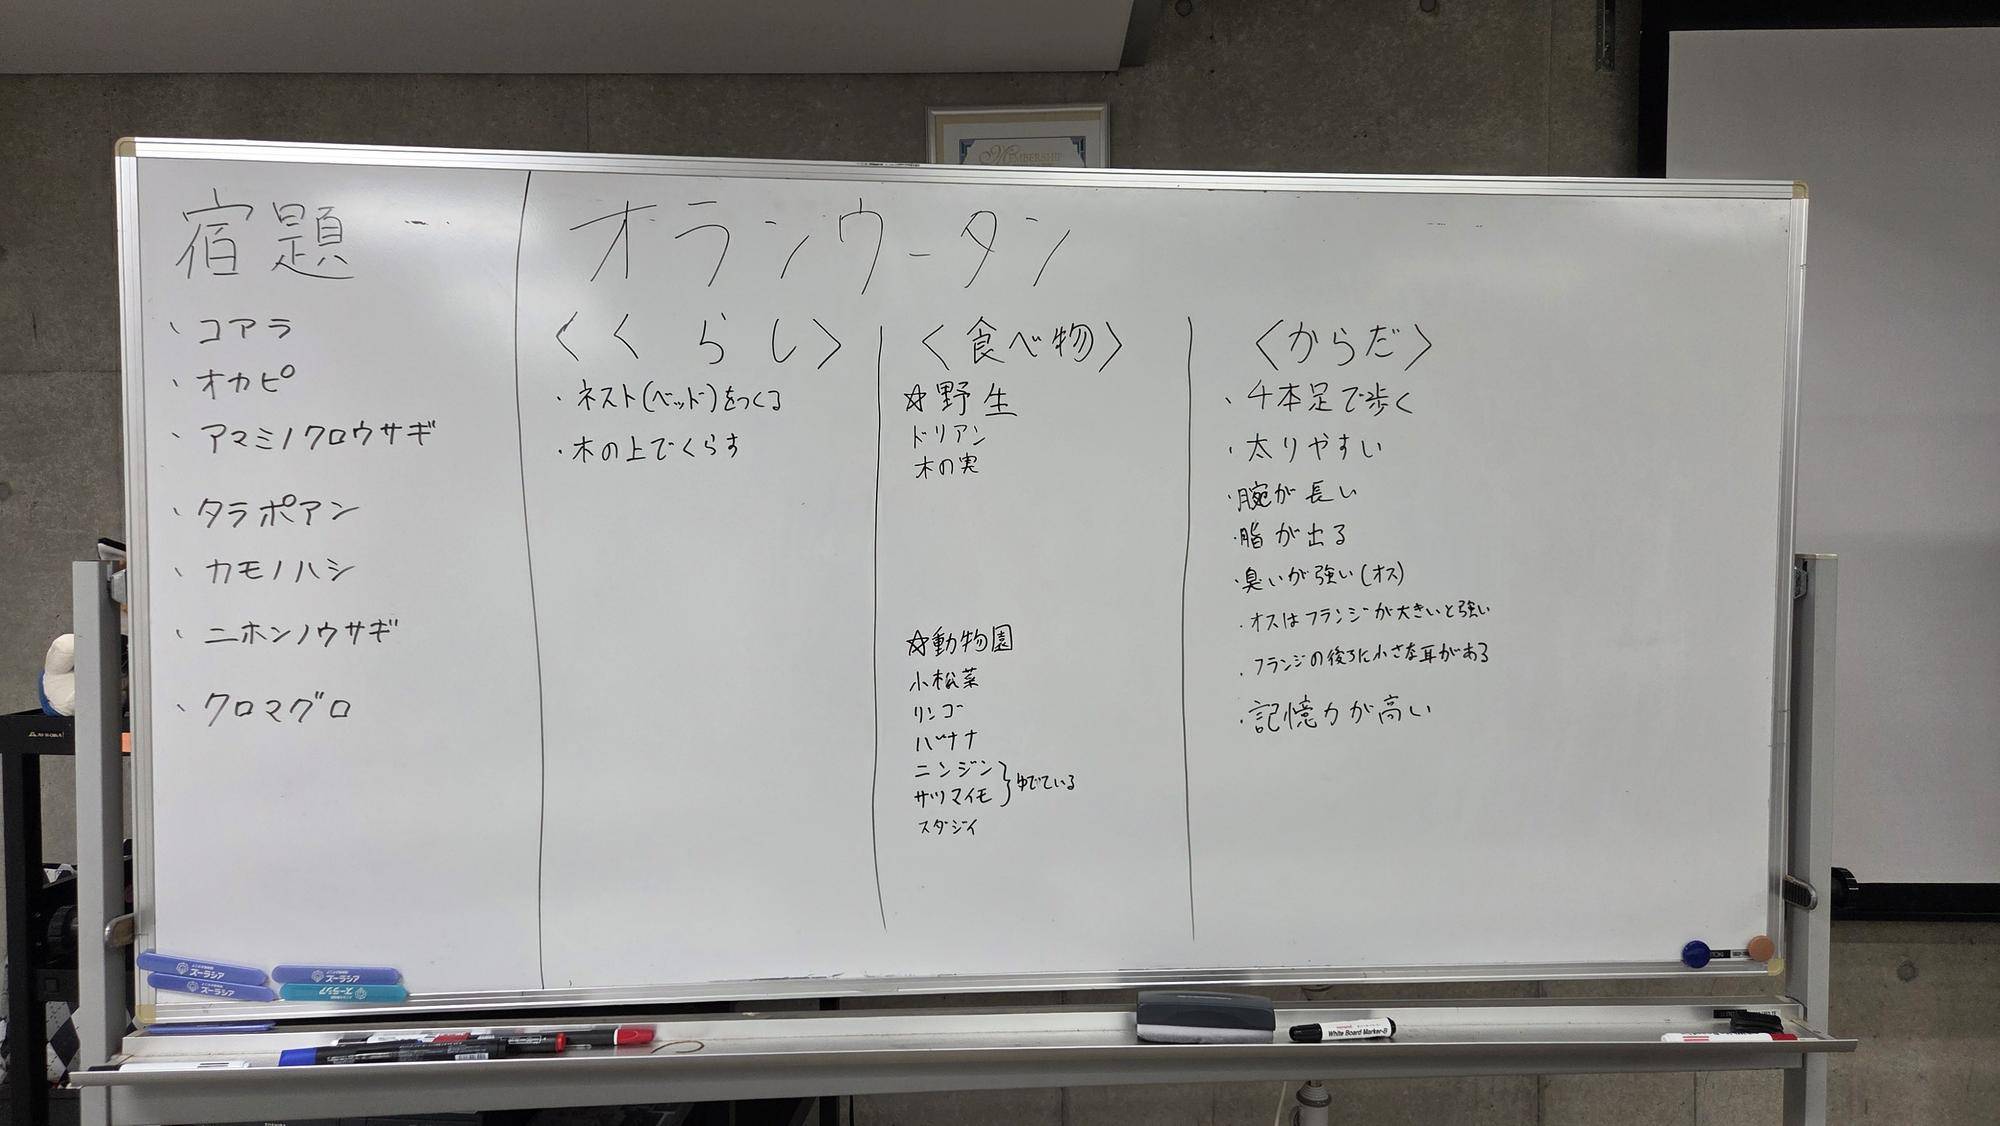 MEMBERSHIP
宿題
・コアラ
・オカピ
・アマミノクロウサギ
・タラポアン
・カモノハシ
・ニホンノウサギ
・クロマグロ
オランウータン
〈くらし〉
・ネスト(ベッド)をつくる
・木の上でくらす
〈食べ物〉
☆野生
ドリアン
木の実
☆動物園
小松菜
リンゴ
バナナ
ニンジン
サツマイモ
}ゆでている
スダジイ
〈からだ〉
・4本足で歩く
・太りやすい
・腕が長い
・脂が出る
・臭いが強い(オス)
・オスはフランジが大きいと強い
・フランジの後ろに小さな耳がある
・記憶力が高い
ズーラシア
ズーラシア
ズーラシア
ズーラシア
White Board Marker-B